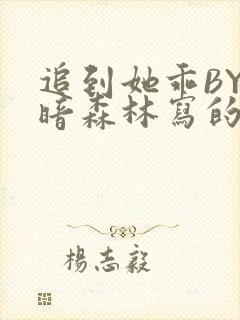 追到她乖BY
暗森林寫的
楊志毅